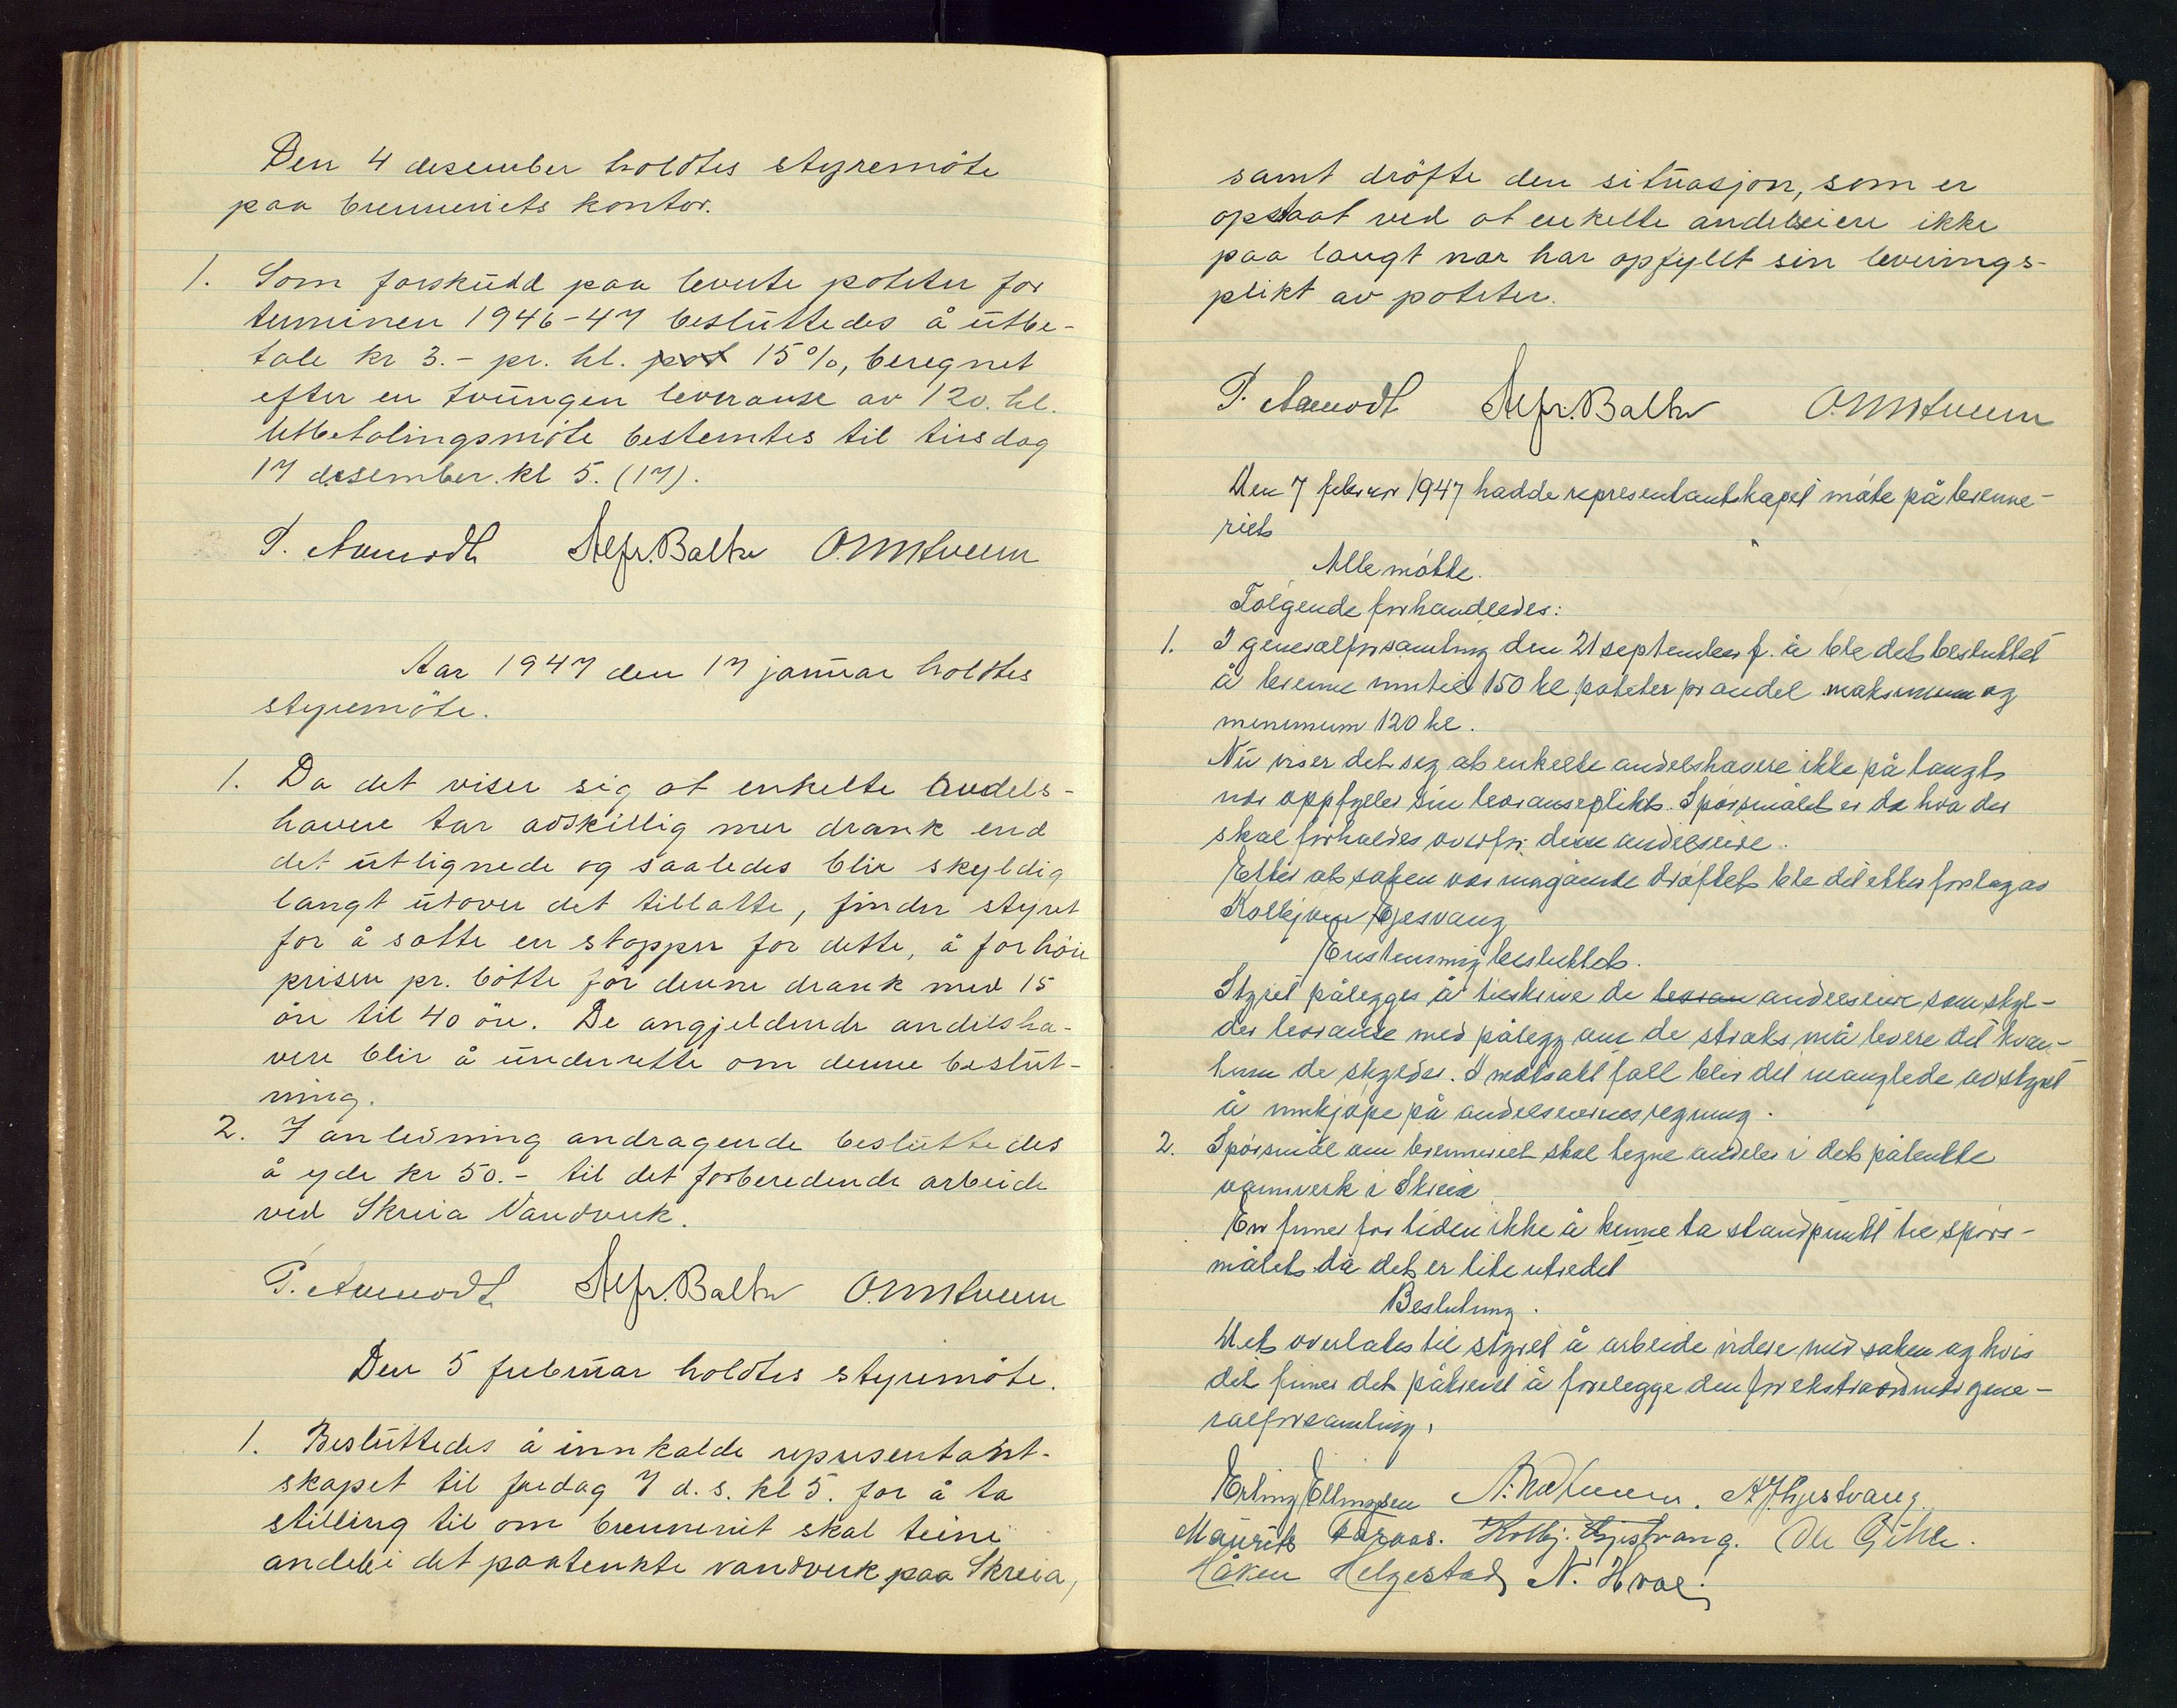 Den 4 desember holdtes styremöte
paa brenneriets kontor.
1. Som forskudd paa leverte poteter for
terminen 1946-47 besluttedes å utbe-
tale kr 3.- pr. hl. pot 15%, beregnet
efter en tvungen leveranse av 120. hl.
Utbetalingsmöte bestemtes til tirsdag
17 desember. kl 5. (17).
P. Aamodt Alfr. Balke O. M. Kveem
Aar 1947 den 17 januar holdtes
styremöte.
1. Da det viser sig at enkelte andels-
havere tar adskillig mer drank end
det utlignede og saaledes blir skyldig
langt utover det tillatte, finder styret
for å sætte en stopper for dette, å forhöie
prisen pr. bötte for denne drank med 15
öre til 40 öre. De angjeldende andelsha-
vere blir å underrette om denne beslut-
ning.
2. I anledning andragende besluttedes
å yde kr 50.- til det forberedende arbeide
ved Skreia Vandverk.
P. Aamodt Alfr. Balke O. M. Kveem
Den 5 februar holdtes styremöte.
1. Besluttedes å innkalde representant-
skapet til fredag 7 d.s. kl 5. for å ta
stilling til om brenneriet skal teine
andeler i det paatenkte vandverk paa Skreia,
samt dröfte den situasjon, som er
opstaat ved at enkelte andelseiere ikke
paa langt nær har opfyllt sin leverings-
plikt av poteter.
P. Aamodt Alfr. Balke O. M. Kveem
Den 7 februar 1947 hadde representantskapet möte på brenne-
riet
Alle mötte.
Fölgende forhandledes:
1. I generalforsamling den 21 september f. å ble det besluttet
å brenne inntil 150 hl poteter pr andel maksimum og
minimum 120 hl.
Nu viser det seg at enkelte andelshavere ikke på langt
nær oppfyller sin leveranseplikt. Spörsmålet er da hva der
skal forholdes overfor disse andelseiere.
Etter at saken var inngående dröftet ble det etter forslag av
Kolbjörn Gjesvang
Enstemmig besluttet.
Styret pålegges å tilskrive de leveran andelseiere som skyl-
der leveranse med pålegg om de straks må levere det kvan-
tum de skylder. I motsatt fall blir det manglede av styret
å innkjöpe på andelseierens regning.
2. Spörsmål om brenneriet skal tegne andeler i det påtenkte
vannverk i Skreia
En finner for tiden ikke å kunne ta standpunkt til spörs-
målet da det er lite utredet
Beslutning.
Det overlates til styret å arbeide videre med saken og hvis
det finner det påkrevet å forelegge den for ekstraordinær gene-
ralforsamling.
Erling Ellingsen A. J. Gjestvang.
Kolbj. Gjestvang. Ole Gihle.
Håken Helgestad N. Hvae.